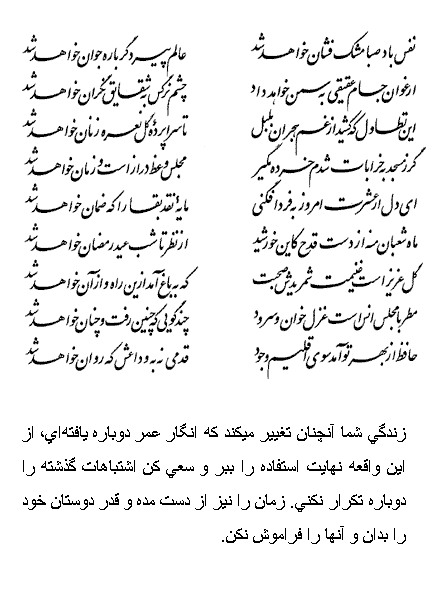 نفس باد صبا مشک فشان خواهد شد عالم پیر دگر باره جوان خواهد شد
ارغوان جام عقیقی به سمن خواهد داد چشم نرگس به شقایق نگران خواهد شد
این تطاول که کشید از غم هجران بلبل تا سراپردهٔ گل نعره زنان خواهد شد
گر ز مسجد به خرابات شدم خرده مگیر مجلس وعظ دراز است و زمان خواهد شد
ای دل ار عشرت امروز به فردا فکنی مایهٔ نقد بقا را که ضمان خواهد شد
ماه شعبان منه از دست قدح کاین خورشید از نظر تا شب عید رمضان خواهد شد
گل عزیز است غنیمت شمریدش صحبت که به باغ آمد ازین راه و از آن خواهد شد
مطربا مجلس انس است غزل خوان و سرود چند گویی که چنین رفت و چنان خواهد شد
حافظ از بهر تو آمد سوی اقلیم وجود قدمی نه به وداعش که روان خواهد شد
زندگي شما آنچنان تغيير ميکند که انگار عمر دوباره يافته‌اي، از
اين واقعه نهايت استفاده را ببر و سعي کن اشتباهات گذشته را
دوباره تکرار نکني. زمان را نيز از دست مده و قدر دوستان خود
را بدان و آنها را فراموش نکن.